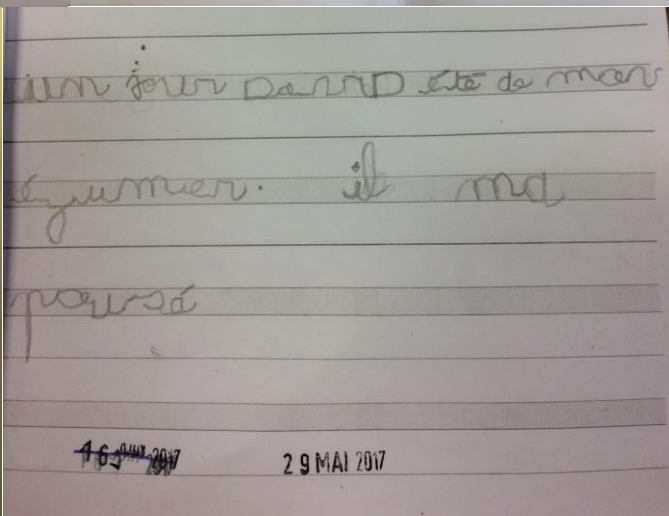 un jour DaviD été de mau
égumer. il ma
pousé
16 JANV 2017 29 MAI 2017